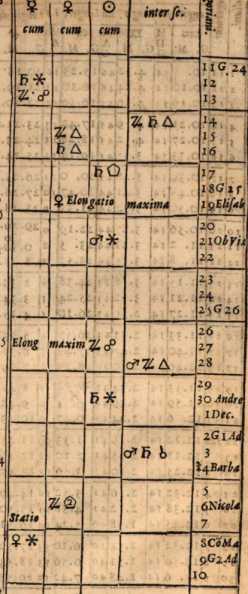 ☿ ♀ ☉ inter se.
cum cum cum
11 G. 24
♄ ⚹ 12
♃ ☍ 13
♃ ♄ △ 14
♃ △ 15
♄ △ 16
♄ ⬠ 17
18 G 25
♀ Elongatio maxima 19 Elisab
20
♂ ⚹ 21 Ob Via
22
23
24
25 G 26
26
Elong maxim ♃ ☍ 27
♂ ♃ △ 28
29
♄ ⚹ 30 Andre
1 Dec.
2 G 1 Ad
♂ ♄ 3
4 Barba
5
♃ 6 Nicola
Statio 7
♀ ⚹ 8 Co Ma
9 G 2 Ad
10